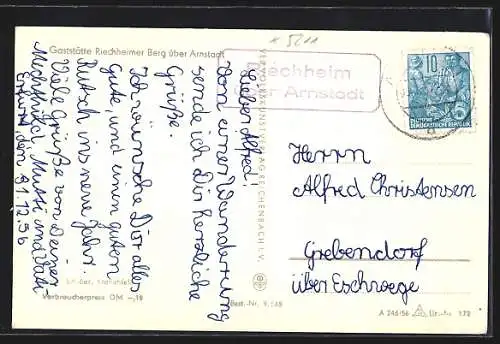 Gaststätte Riechheimer Berg über Arnstadt
Lieber Alfred!
Von einer Wanderung
sende ich Dir herzliche
Grüße.
Ich wünsche Dir alles
gute, und einen guten
Rutsch ins neue Jahr.
Viele Grüße von Deiner
Mutti und Vati
Erfurt, den 31.12.56
Verbraucherpreis DM -,19
VERLAG REICHENBACH I. V.
Best.-Nr. 9/
Riechheim
über Arnstadt
10
DEUTSCHE
DEMOKRATISCHE REPUBLIK
Herrn
Alfred Christensen
Grebendorf
über Eschwege
A 246/56